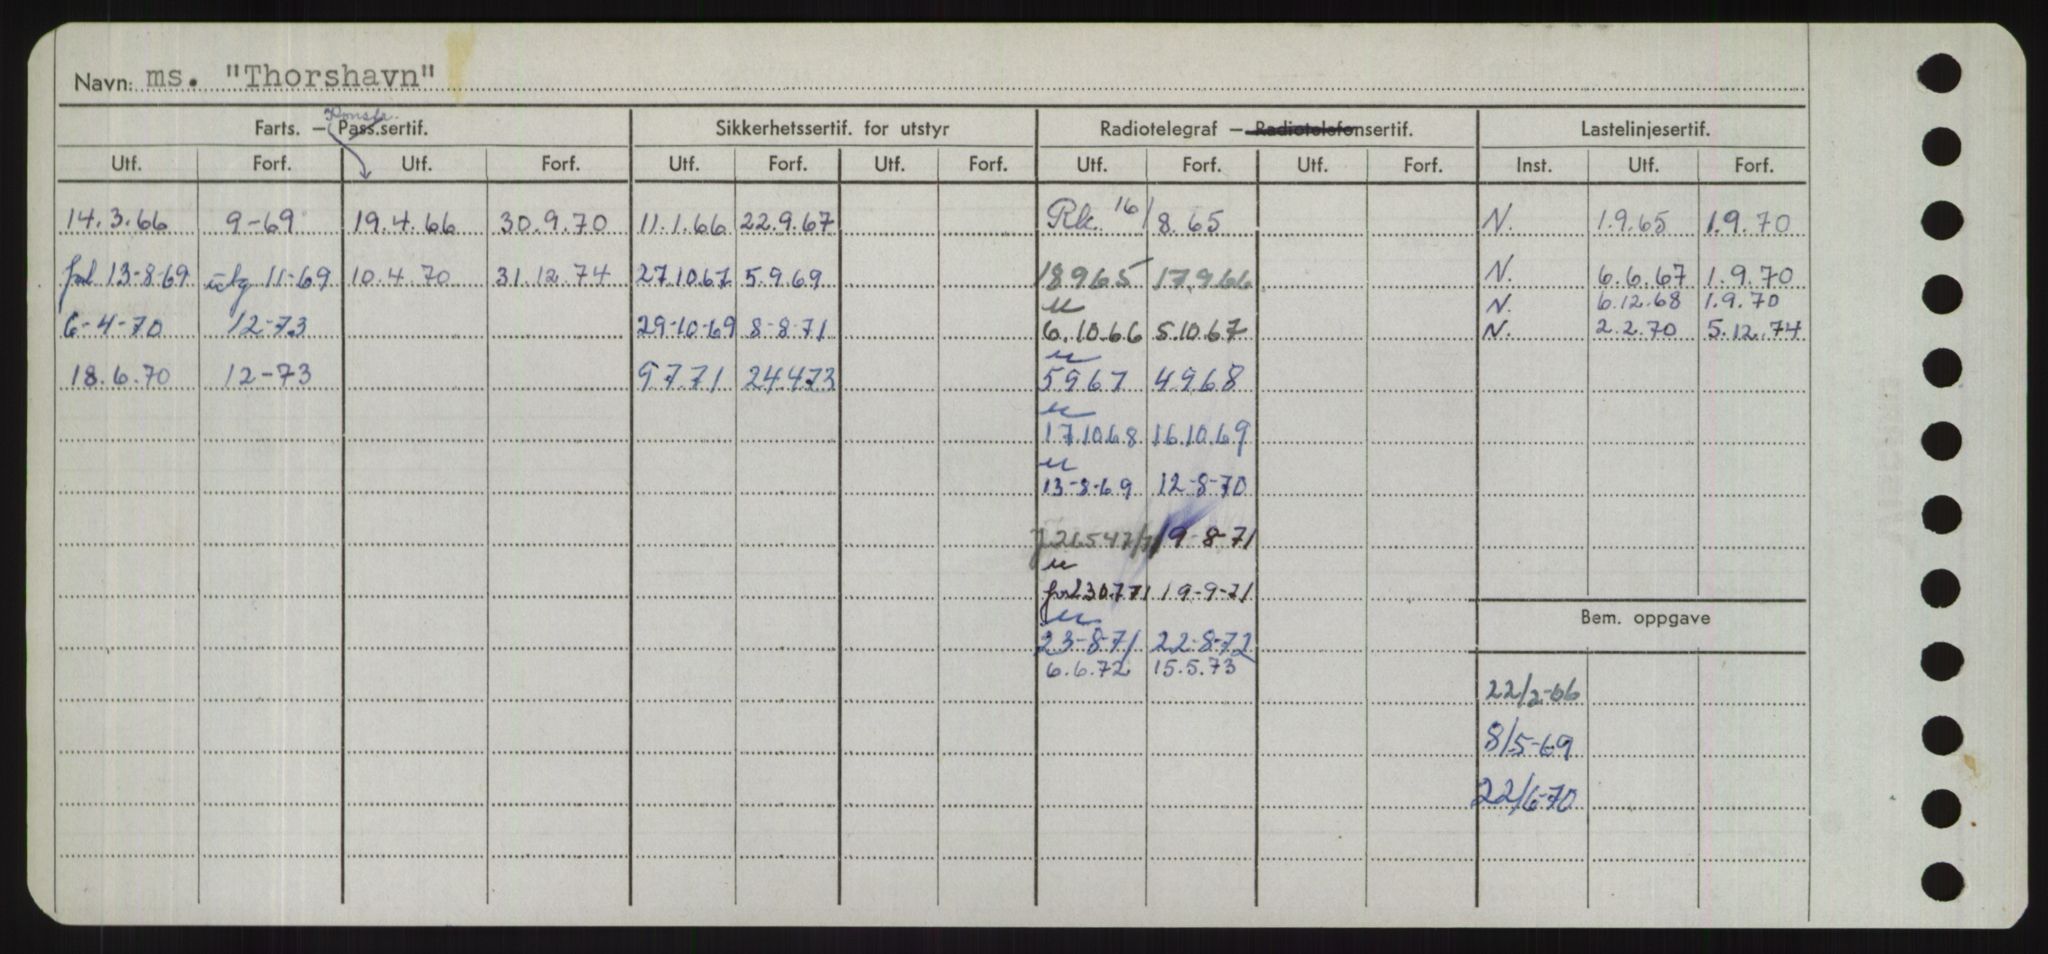 Navn: ms. "Thorshavn"
Farts. – Pass.sertif. Sikkerhetssertif. for utstyr Radiotelegraf – Radiotelefonsertif. Lastelinjesertif.
Utf. Forf. Utf. Forf. Utf. Forf. Utf. Forf. Utf. Forf. Utf. Forf. Inst. Utf. Forf.
14.3.66 9-69 19.4.66 30.9.70 11.1.66 22.9.67 Rk. 16/8.65 N. 1.9.65 1.9.70
13-8-69 11-69 10.4.70 31.12.74 27.10.67 5.9.69 18965 17.9.66 N. 6.6.67 1.9.70
N. 6.12.68 1.9.70
6-4-70 12-73 29-10-69 8-8-71 6.10.66 5.10.67 N. 2.2.70 5.12.74
18.6.70 12-73 9771 24473 5967 4968
17.10.68 16.10.69
13-8-69 12-8-70
19-8-71
30771 19-9-71
Bem. oppgave
23-8-71 22-8-72
6.6.72 15.5.73
22/2-66
8/5-69
22/6-70